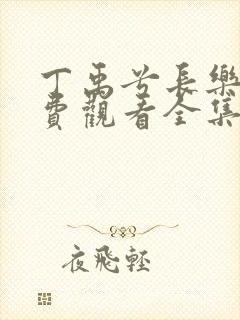 丁禹兮長樂
費觀看全集
夜飛輕